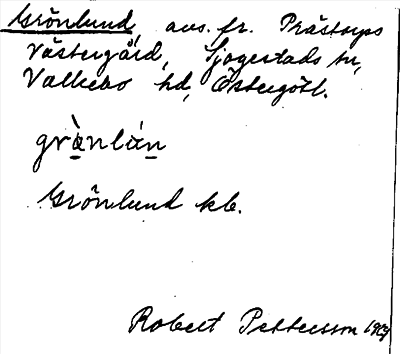 Grönlund, avs. fr. Prästorps
Västergård, Sjögestads sn,
Valkebo hd, Östergötl.
grànlún
Grönlund kb.
Robert Pettersson